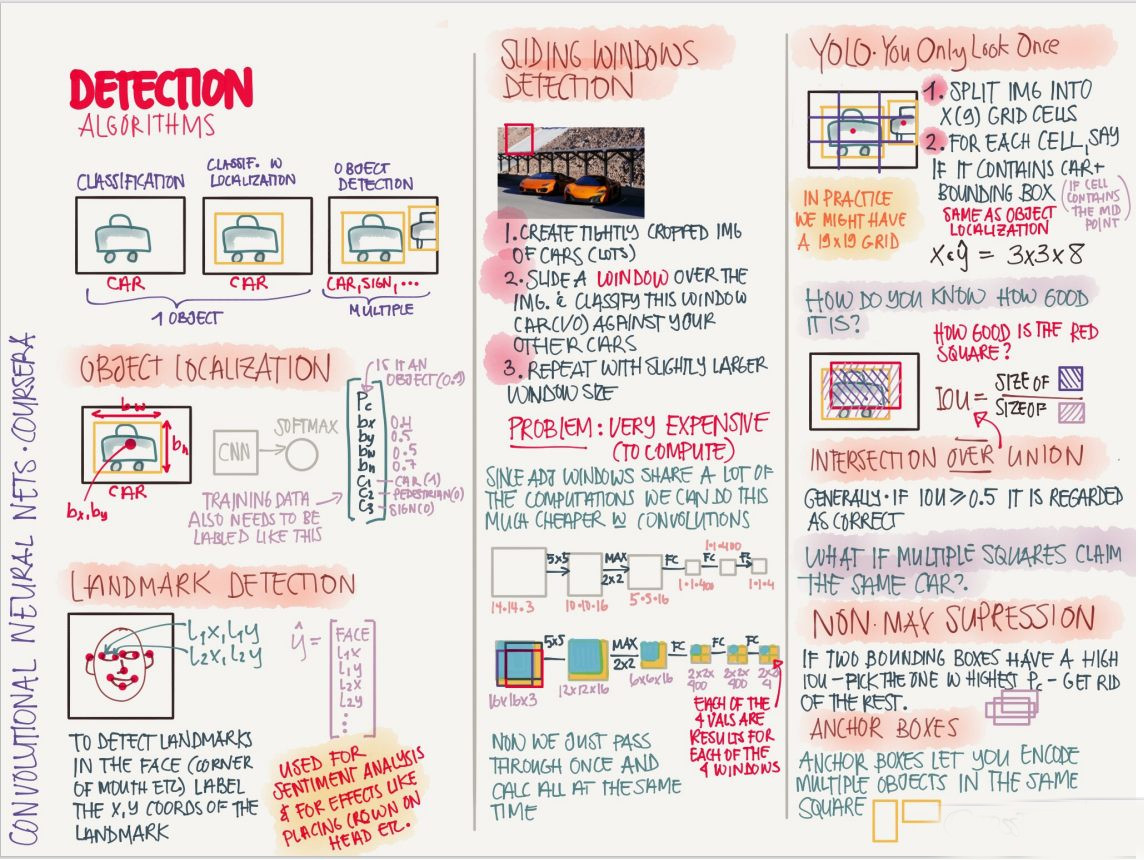 CONVOLUTIONAL NEURAL NETS · COURSERA
DETECTION
ALGORITHMS
CLASSIFICATION
CAR
CLASSIF. W
LOCALIZATION
CAR
OBJECT
DETECTION
CAR, SIGN, ...
1 OBJECT
MULTIPLE
OBJECT LOCALIZATION
bw
bh
CAR
bx, by
CNN
SOFTMAX
TRAINING DATA
ALSO NEEDS TO BE
LABLED LIKE THIS
IS IT AN
OBJECT (0.9)
Pc
bx 0.4
by 0.5
bw 0.5
bh 0.7
C1 CAR (1)
C2 PEDESTRIAN (0)
C3 SIGN (0)
LANDMARK DETECTION
L1X, L1Y
L2X, L2Y
ŷ =
FACE
L1X
L1Y
L2X
L2Y
⋮
TO DETECT LANDMARKS
IN THE FACE (CORNER
OF MOUTH ETC) LABEL
THE X,Y COORDS OF THE
LANDMARK
USED FOR
SENTIMENT ANALYSIS
& FOR EFFECTS LIKE
PLACING CROWN ON
HEAD ETC.
SLIDING WINDOWS
DETECTION
1. CREATE TIGHTLY CROPPED IMG
OF CARS (LOTS)
2. SLIDE A WINDOW OVER THE
IMG. & CLASSIFY THIS WINDOW
CAR(1/0) AGAINST YOUR
OTHER CARS
3. REPEAT WITH SLIGHTLY LARGER
WINDOW SIZE
PROBLEM: VERY EXPENSIVE
(TO COMPUTE)
SINCE ADJ WINDOWS SHARE A LOT OF
THE COMPUTATIONS WE CAN DO THIS
MUCH CHEAPER W CONVOLUTIONS
14·14·3
5x5
10·10·16
MAX
2x2
5·5·16
FC
1·1·400
FC
1·1·400
FC
1·1·4
16x16x3
5x5
12x12x16
MAX
2x2
6x6x16
FC
2x2x
400
FC
2x2x
400
FC
2x2x
4
EACH OF THE
4 VALS ARE
RESULTS FOR
EACH OF THE
4 WINDOWS
NOW WE JUST PASS
THROUGH ONCE AND
CALC ALL AT THE SAME
TIME
YOLO · You Only Look Once
1. SPLIT IMG INTO
X(9) GRID CELLS
2. FOR EACH CELL, SAY
IF IT CONTAINS CAR +
BOUNDING BOX
(IF CELL
CONTAINS
THE MID
POINT)
SAME AS OBJECT
LOCALIZATION
IN PRACTICE
WE MIGHT HAVE
A 19x19 GRID
X & ŷ = 3x3x8
HOW DO YOU KNOW HOW GOOD
IT IS?
HOW GOOD IS THE RED
SQUARE?
IOU = SIZE OF
SIZE OF
INTERSECTION OVER UNION
GENERALLY · IF IOU ⩾ 0.5 IT IS REGARDED
AS CORRECT
WHAT IF MULTIPLE SQUARES CLAIM
THE SAME CAR?
NON·MAX SUPRESSION
IF TWO BOUNDING BOXES HAVE A HIGH
IOU – PICK THE ONE W HIGHEST Pc – GET RID
OF THE REST.
ANCHOR BOXES
ANCHOR BOXES LET YOU ENCODE
MULTIPLE OBJECTS IN THE SAME
SQUARE